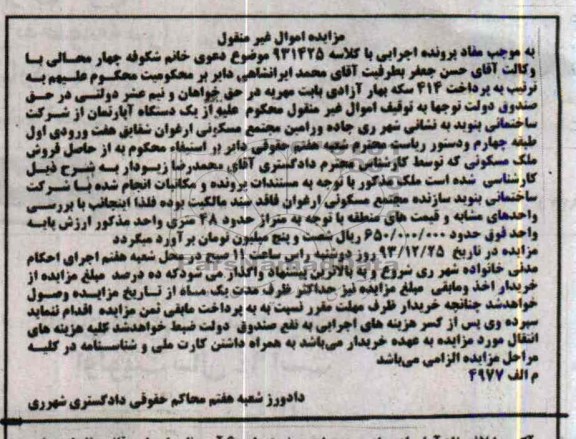 مزایده اموال غیر منقول
به موجب مفاد پرونده اجرایی با کلاسه ۹۳۱۴۲۵ موضوع دعوی خانم شکوفه چهار محالی با
وکالت آقای حسن جعفر بطرفیت آقای محمد ایرانشاهی دایر بر محکومیت محکوم علیهم به
ترتیب به پرداخت ۴۱۴ سکه بهار آزادی بابت مهریه در حق خواهان و نیم عشر دولتی در حق
صندوق دولت توجها به توقیف اموال غیر منقول محکوم علیه از یک دستگاه آپارتمان از شرکت
ساختمانی بنوید به نشانی شهر ری جاده ورامین مجتمع مسکونی ارغوان شقایق هفت ورودی اول
طبقه چهارم ودستور ریاست محترم شعبه هفتم حقوقی دایر بر استیفاء محکوم به از حاصل فروش
ملک مسکونی که توسط کارشناس محترم دادگستری آقای محمدرضا زیودار به شرح ذیل
کارشناسی شده است ملک مذکور با توجه به مستندات پرونده و مکاتبات انجام شده با شرکت
ساختمانی بنوید سازنده مجتمع مسکونی ارغوان فاقد سند مالکیت بوده فلذا اینجانب با بررسی
واحدهای مشابه و قیمت های منطقه با توجه به متراژ حدود ۴۸ متری واحد مذکور ارزش پایه
واحد فوق حدود ۶۵۰/۰۰۰/۰۰۰ ریال شصت و پنج میلیون تومان برآورد میگردد
مزایده در تاریخ ۹۳/۱۲/۲۵ روز دوشنبه راس ساعت ۱۱ صبح در محل شعبه هفتم اجرای احکام
مدنی خانواده شهر ری شروع و به بالاترین پیشنهاد واگذار می شودکه ده درصد مبلغ مزایده از
خریدار اخذ ومابقی مبلغ مزایده نیز حداکثر ظرف مدت یک ماه از تاریخ مزایده وصول
خواهدشد چنانچه خریدار ظرف مهلت مقرر نسبت به به پرداخت مابقی ثمن مزایده اقدام ننماید
سپرده وی پس از کسر هزینه های اجرایی به نفع صندوق دولت ضبط خواهدشد کلیه هزینه های
انتقال مورد مزایده به عهده خریدار میباشد به همراه داشتن کارت ملی و شناسنامه در کلیه
مراحل مزایده الزامی می‌باشد
م الف ۴۹۷۷
دادورز شعبه هفتم محاکم حقوقی دادگستری شهرری